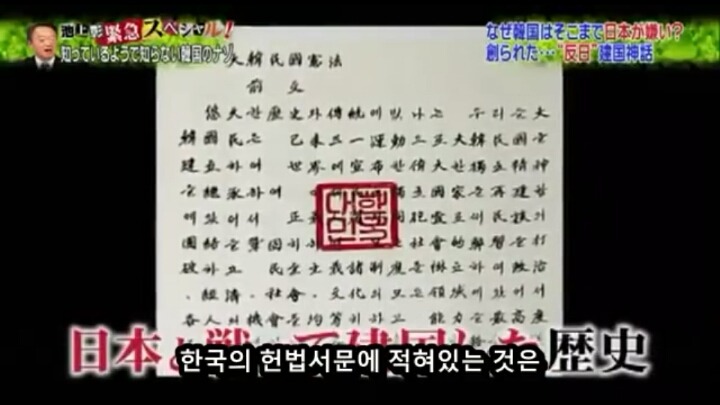 池上彰緊急スペシャル!
知っているようで知らない韓国のナゾ
なぜ韓国はそこまで日本が嫌い?
創られた…"反日"建国神話
大韓民國憲法
前文
悠久한 歷史와 傳統에 빛나는 우리들 大
韓國民은 己未三一運動으로 大韓民國을
建立하여 世界에 宣布한 偉大한 獨立精神
을 繼承하여 獨立國家를 再建함
에 있어서 正義 同胞愛로써 民族의
團結을 鞏固히 하며 社會的 弊習을 打
破하고 民主主義諸制度를 樹立하여 政治
、經濟、社會、文化의 모든 領域에 있어서
各人의 機會를 均等히 하고 能力을 最高度
대한민국
日本と戦って建国した歴史
한국의 헌법서문에 적혀있는 것은